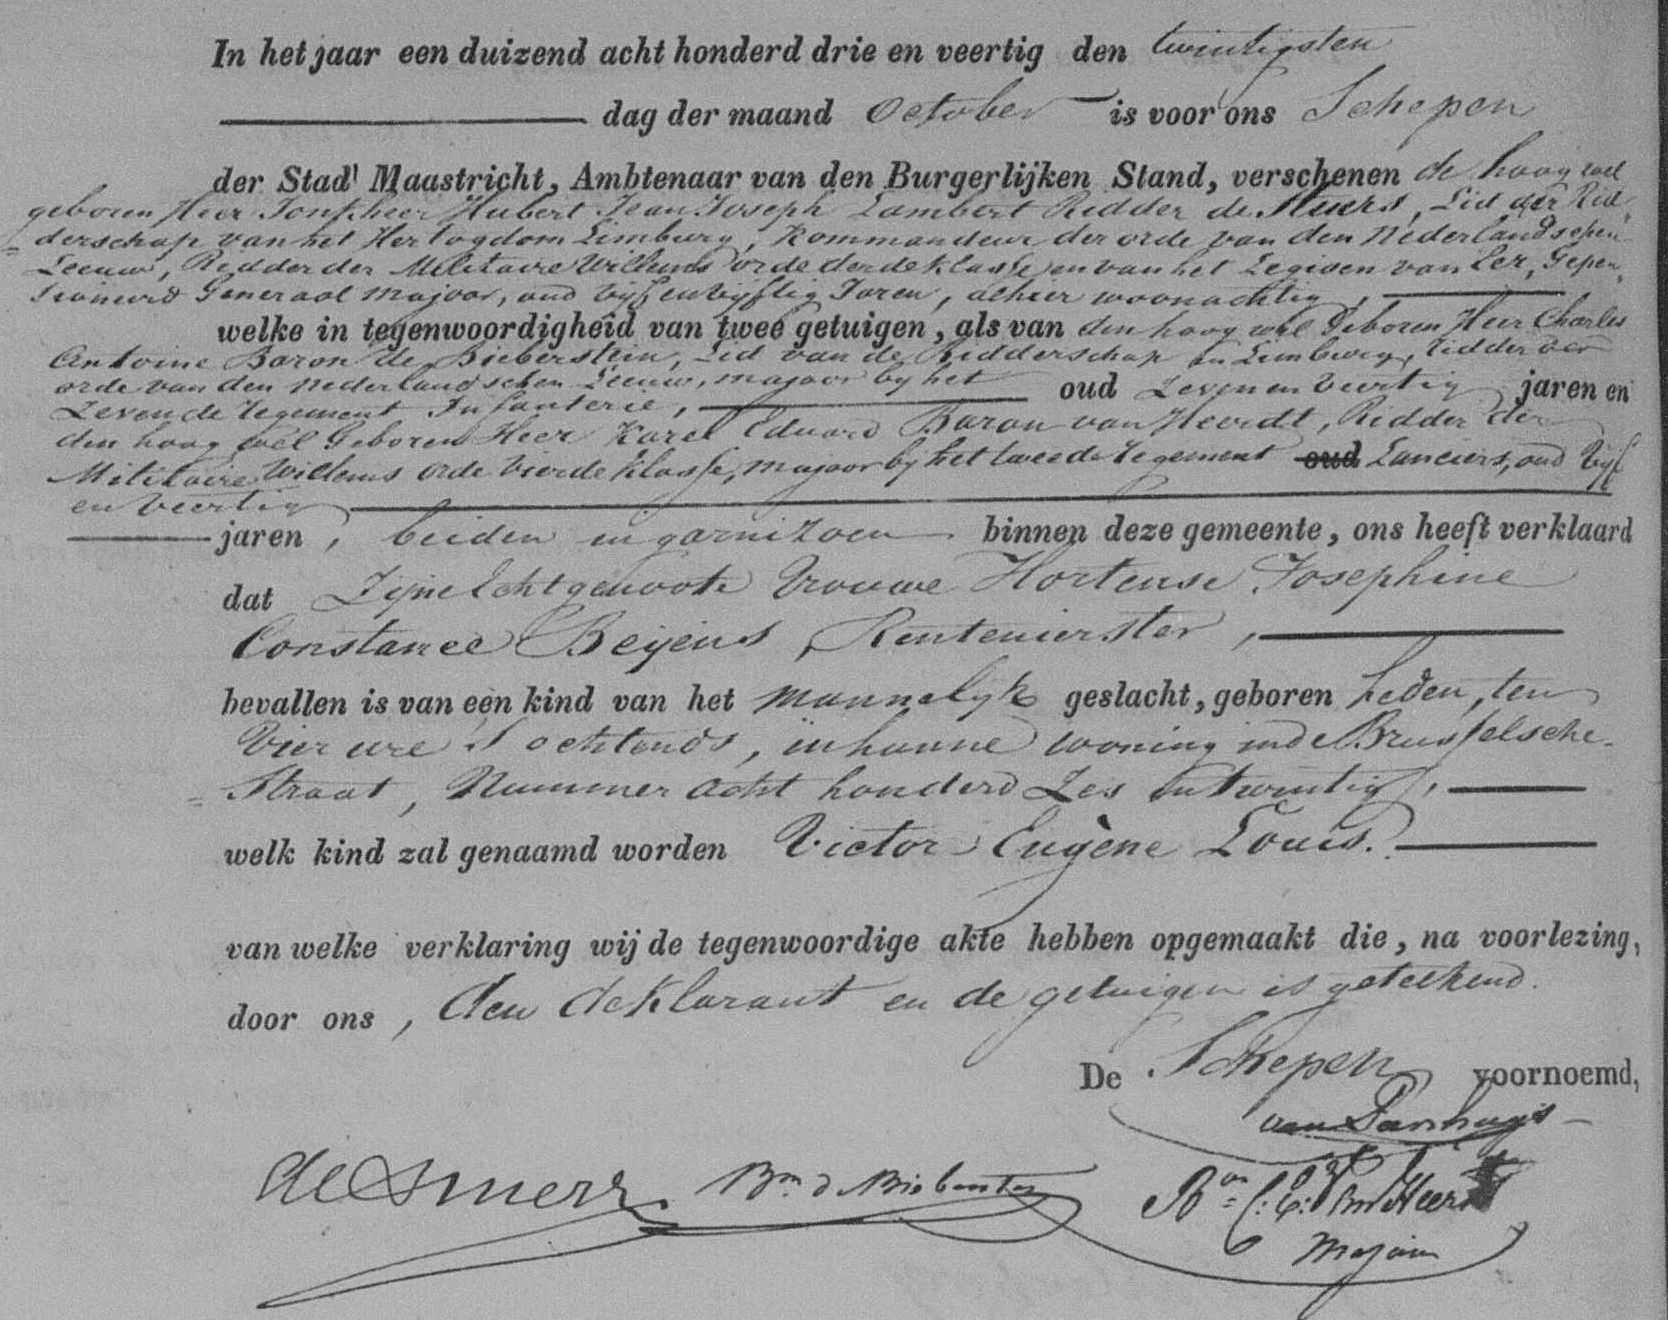 In het jaar een duizend acht honderd drie en veertig den twintigsten
dag der maand October is voor ons Schepen
der Stad Maastricht, Ambtenaar van den Burgerlijken Stand, verschenen de hoog wel
geboren Heer Jonkheer Hubert Jean Joseph Lambert Ridder de Stuers, Lid der Rid-
derschap van het Hertogdom Limburg, Kommandeur der orde van den Nederlandschen
Leeuw, Ridder der Militaire Willems orde derde klasse en van het Legioen van Eer, Gepen-
sioneerd Generaal Majoor, oud vijf en vijftig Jaren, alhier woonachtig,
welke in tegenwoordigheid van twee getuigen, als van den hoog wel Geboren Heer Charles
Antoine Baron de Bieberstein, Lid van de Ridderschap in Limburg, ridder der
orde van den Nederlandschen Leeuw, majoor bij het oud Zeven en Veertig jaren en
Zevende regement Infanterie,
den hoog wel Geboren Heer Karel Eduard Baron van Heerdt, Ridder der
Militaire Willems orde vierde klasse, majoor bij het tweede regement oud Lanciers, oud Vijf
en Veertig
jaren, beiden in garnizoen binnen deze gemeente, ons heeft verklaard
dat Zijne Echtgenoote Vrouwe Hortense Josephine
Constance Beijens, Rentenierster,
bevallen is van een kind van het mannelijk geslacht, geboren heden, ten
Vier ure 's ochtends, in hunne woning in de Brusselsche-
Straat, Nummer acht honderd Zes en twintig,
welk kind zal genaamd worden Victor Eugène Louis.
van welke verklaring wij de tegenwoordige akte hebben opgemaakt die, na voorlezing,
door ons, den deklarant en de getuigen is geteekend.
De Schepen voornoemd,
de Stuers
Bon
Majoor